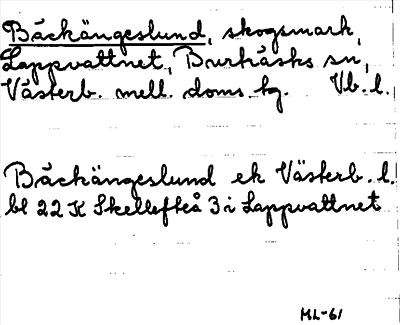 Bäckängeslund, skogsmark,
Lappvattnet, Burträsks sn,
Västerb. mell. doms. kg. Vb. l.
Bäckängeslund ek Västerb. l.
bl 22 K Skellefteå 3 i Lappvattnet
ML-61